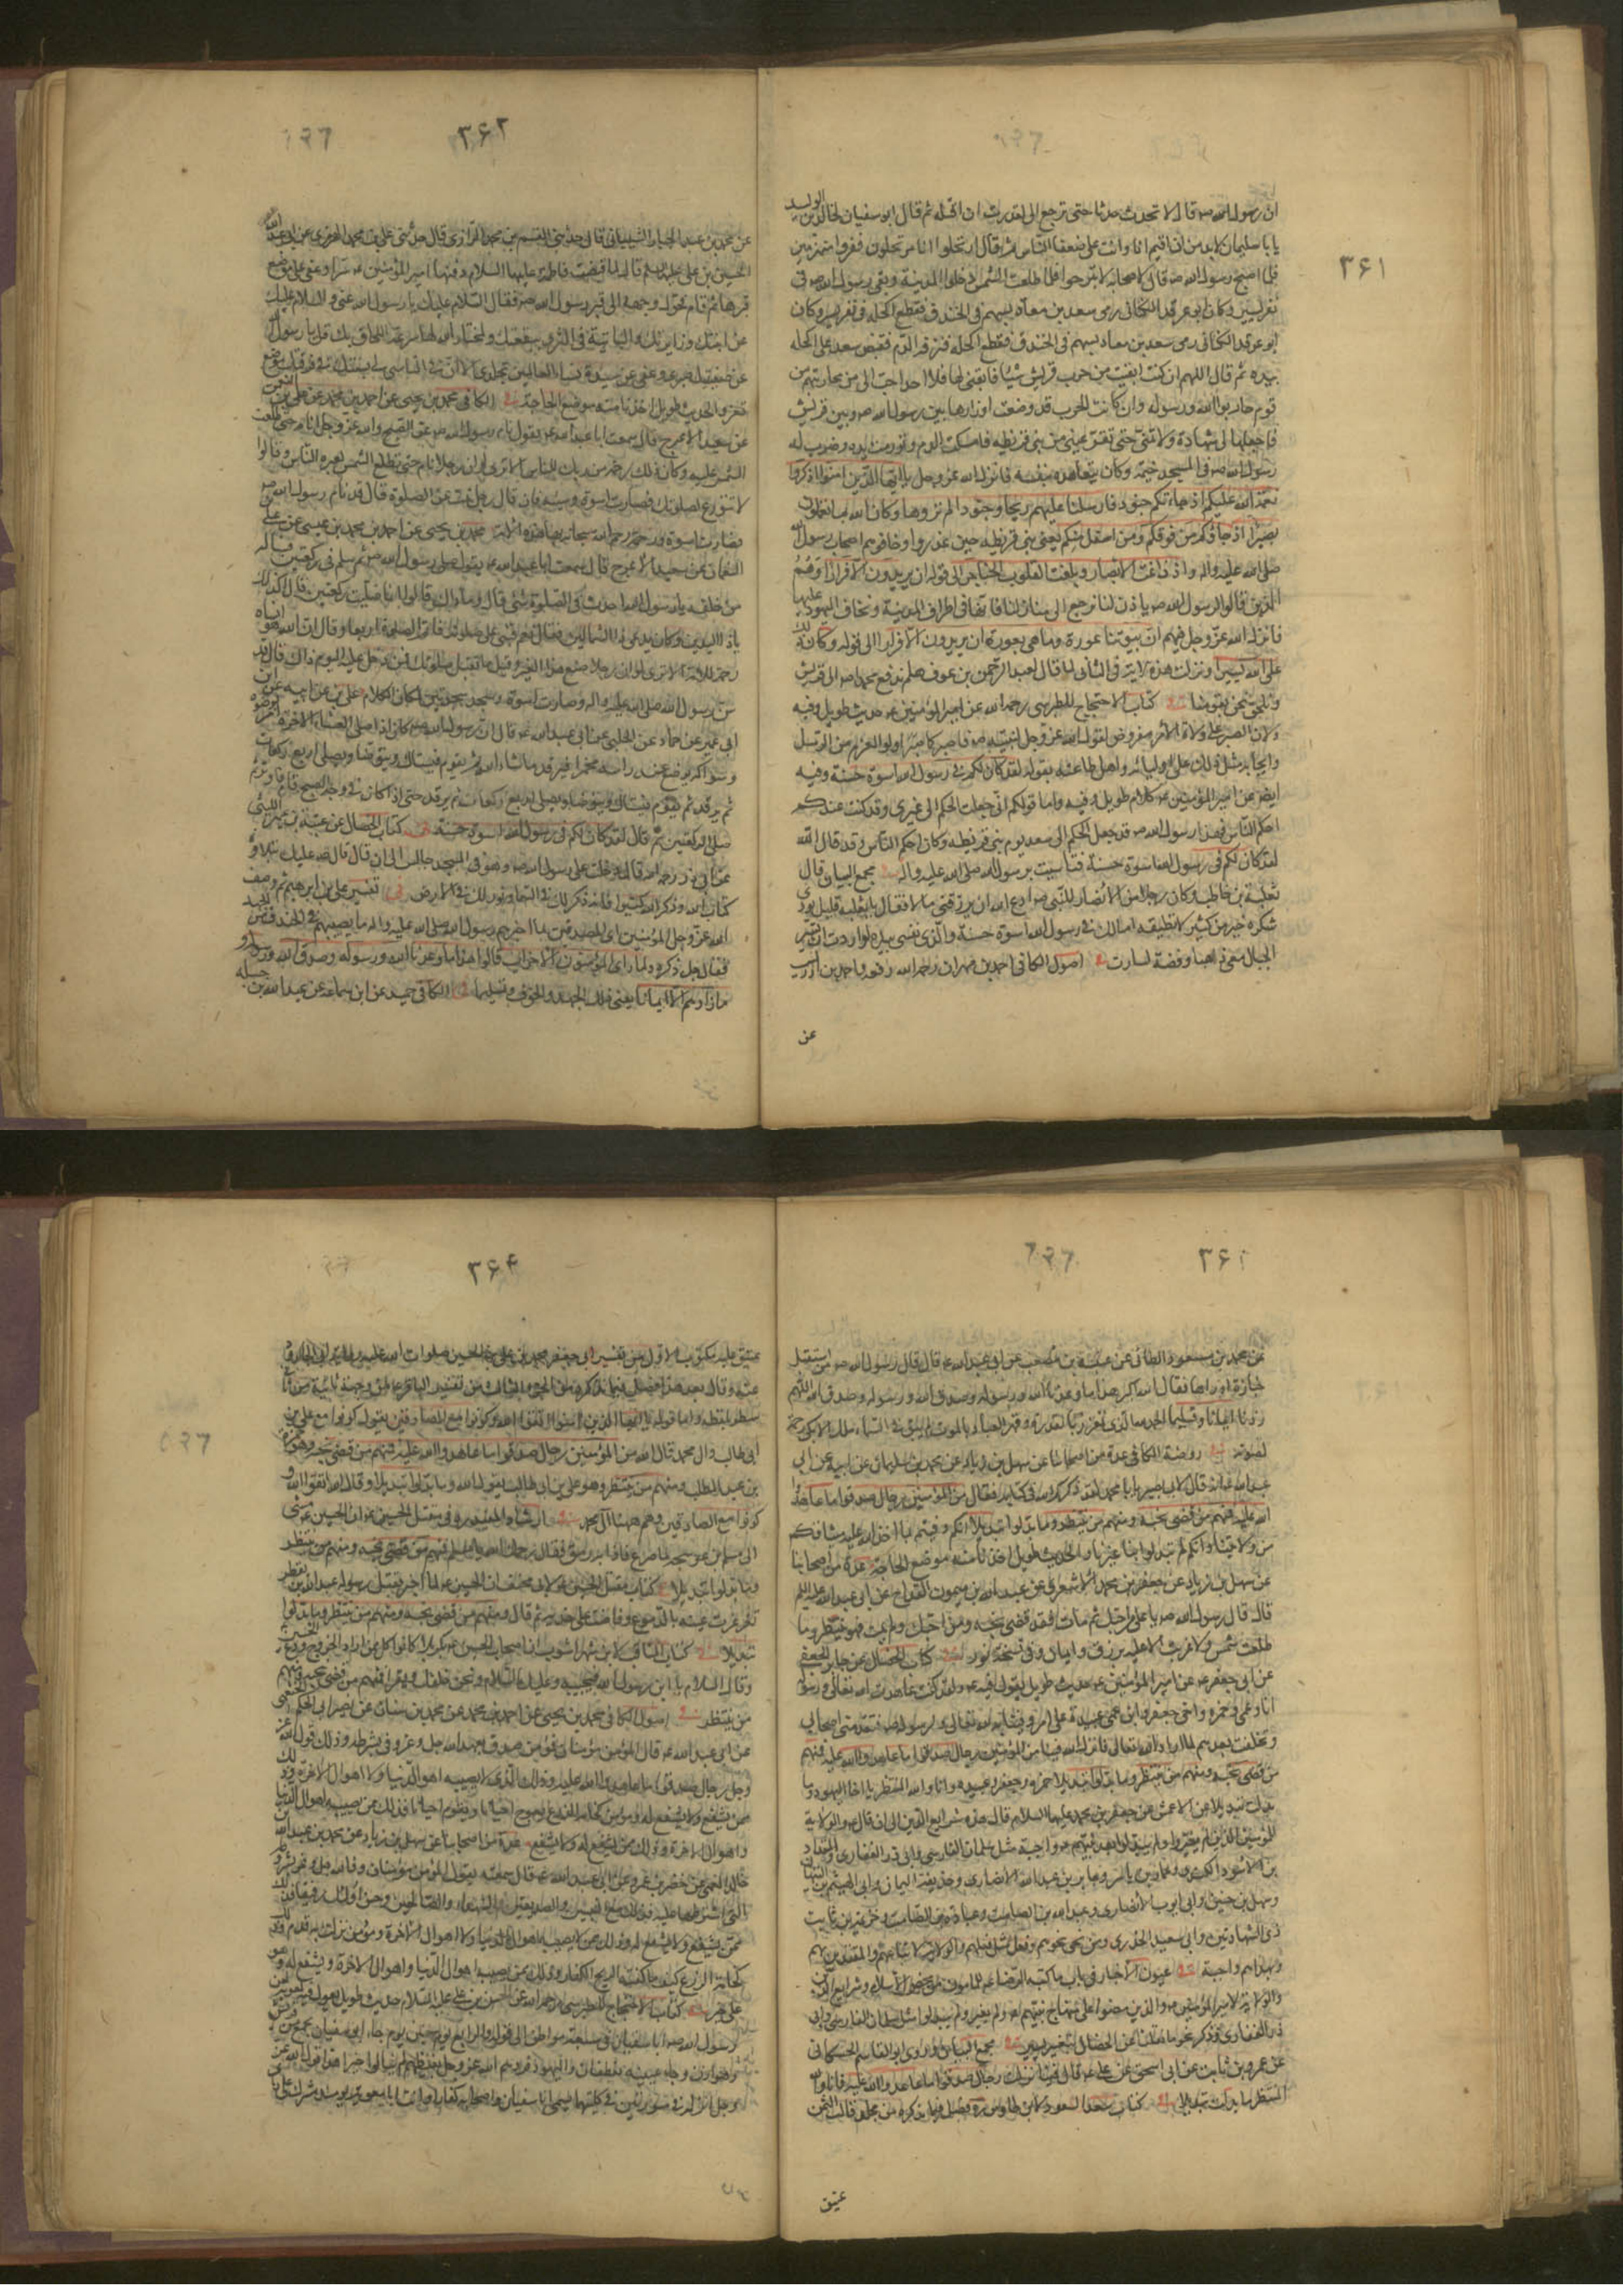 ۳۶۱
ان رسول الله صه قال لا تحدث حدثا حتى ترجع الى لقدرت ان اقتله ثم قال ابو سفيان لخالد بن الوليد
يا با سليمان لابد من ان اقيم انا وانت على ضعفا الناس ثم قال ارتحلوا انا مرتحلون ففروا منهزمين
فلما اصبح رسول الله صه قال لاصحابه لا تبرحوا فلما طلعت الشمس دخلوا المدينة وبقى رسول الله صه فى
نفر يسير وكان ابو عرقد الكنانى رمى سعد بن معاذ بسهم فى الخندق فقطع اكحله
ابو عرقد الكنانى رمى سعد بن معاذ بسهم فى الخندق فقطع اكحله فنزفه الدم فقبض سعد على اكحله
بيده ثم قال اللهم ان كنت ابقيت من حرب قريش شيئا فابقنى لها فلا احد احب الى من محاربتهم من
قوم حاربوا الله ورسوله وان كانت الحرب قد وضعت اوزارها بين رسول الله صه وبين قريش
فاجعلها لى شهادة ولا تمتنى حتى تقر عينى من بنى قريظه فامسك الدم وتورمت يده وضرب له
رسول الله صه فى المسجد خيمة وكان يتعاهده بنفسه فانزل الله عز وجل يا ايها الذين امنوا اذكروا
نعمة الله عليكم اذ جاءتكم جنود فارسلنا عليهم ريحا وجنودا لم تروها وكان الله بما تعملون
بصيرا اذ جاؤكم من فوقكم ومن اسفل منكم يعنى بنى قريظه حين غدروا وخافوهم اصحاب رسول الله
صلى الله عليه واله واذ زاغت الابصار وبلغت القلوب الحناجر الى قوله ان يريدون الا فرارا وهم
الذين قالوا لرسول الله صه ياذن لنا نرجع الى منازلنا فانها فى اطراف المدينة ونخاف اليهود عليها
فانزل الله عز وجل فيهم ان بيوتنا عورة وما هى بعورة ان يريدون الا فرارا الى قوله وكان ذلك
على الله يسيرا ونزلت هذه الاية فى الثانى لما قال لعبد الرحمن بن عوف هلم ندفع محمدا صه الى قريش
ونلحق نحن بقومنا فى كتاب الاحتجاج للطبرسى رحمه الله عن امير المؤمنين عه حديث طويل وفيه
ولان الصبر على ولاة الامر مفروض لقول الله عز وجل لنبيه صه فاصبر كما صبر اولوا العزم من الرسل
وايجابه مثل ذلك على اوليائه واهل طاعته بقوله لقد كان لكم فى رسول الله اسوة حسنة وفيه
ايضا عن امير المؤمنين عه كلام طويل وفيه واما قولكم انى جعلت الحكم الى غيرى وقد كنت عندكم
احكم الناس فهذا رسول الله صه قد جعل الحكم الى سعد يوم بنى قريظه وكان احكم الناس وقد قال الله
لقد كان لكم فى رسول الله اسوة حسنة فتاسيت برسول الله صلى الله عليه واله فى مجمع البيان قال
ثعلبة بن حاطب وكان رجلا من الانصار للنبى صه ادع الله ان يرزقنى مالا فقال يا ثعلبه قليل تودى
شكره خير من كثير لا تطيقه اما لك فى رسول الله اسوة حسنة والذى نفسى بيده لو اردت ان تسير
الجبال معى ذهبا وفضة لسارت فى اصول الكافى احمد بن مهران رحمه الله رفعه واحمد بن ادريس
عن
۳۶۲
عن محمد بن عبد الجبار الشيبانى قال حدثنى القسم بن محمد الرازى قال حدثنى على بن محمد الهرمزى عن ابى عبد الله
الحسين بن على عليه السلم قال لما قبضت فاطمة عليها السلام دفنها امير المؤمنين عه سرا وعفى على موضع
قبرها ثم قام فحول وجهه الى قبر رسول الله صه فقال السلام عليك يا رسول الله عنى والسلام عليك
عن ابنتك وزايرتك والبايتة فى الثرى ببقعتك والمختار الله لها سرعة اللحاق بك قل يا رسول الله
عن صفيتك صبرى وعفى عن سيدة نساء العالمين تجلدى الا ان فى التاسى لى بسنتك فى فرقتك موضع
تعز والحديث طويل اخذنا منه موضع الحاجة فى الكافى محمد بن يحيى عن احمد بن محمد عن على بن النعمان
عن سعيد الاعرج قال سمعت ابا عبد الله عه يقول نام رسول الله صه عن الصبح والله عز وجل انامه حتى طلعت
الشمس عليه وكان ذلك رحمة من ربك للناس الا ترى لو ان رجلا نام حتى تطلع الشمس لعيره الناس وقالوا
لا تتورع لصلوتك فصارت اسوة وسنة فان قال رجل لرجل نمت عن الصلوة قال قد نام رسول الله صه
فصارت اسوة ورحمة رحم الله سبحانه بها هذه الامة محمد بن يحيى عن احمد بن محمد بن عيسى عن على بن
النعمان عن سعيد الاعرج قال سمعت ابا عبد الله عه يقول صلى رسول الله صه ثم سلم فى ركعتين فساله
من خلفه يا رسول الله احدث فى الصلوة شئ قال وما ذاك قالوا انما صليت ركعتين قال اكذلك
يا ذا اليدين وكان يدعى ذا الشمالين فقال نعم فبنى على صلوته فاتم الصلوة اربعا وقال ان الله هو الذى انساه
رحمة للامة الا ترى لو ان رجلا صنع هذا لعير وقيل ما تقبل صلوتك فمن دخل عليه اليوم ذاك قال قد
سن رسول الله صلى الله عليه واله وصارت اسوة وسجد سجدتين لمكان الكلام على بن عن ابيه عن ابن
ابى عمير عن حماد عن الحلبى عن ابى عبد الله عه قال ان رسول الله صه كان اذا صلى العشاء الاخرة امر بوضوئه
وسواكه يوضع عند راسه مخمرا فيرقد ما شاء الله ثم يقوم فيستاك ويتوضا ويصلى اربع ركعات
ثم يرقد ثم يقوم فيستاك ويتوضا ويصلى اربع ركعات ثم يرقد حتى اذا كان فى وجه الصبح قام فاوتر ثم
صلى الركعتين ثم قال لقد كان لكم فى رسول الله اسوة حسنة فى كتاب الخصال عن عتبة بن عمير الليثى
عن ابى ذر رحمه الله قال دخلت على رسول الله صه وهو فى المسجد جالس الى ان قال قال صه عليك بتلاوة
كتاب الله وذكر الله كثيرا فانه ذكر لك فى السماء ونور لك فى الارض فى تفسير على بن ابرهيم ثم وصف
الله عز وجل المؤمنين اى المصدقين بما اخبرهم رسول الله صلى الله عليه واله ما يصيبهم فى الخندق من الجهد
فقال جل ذكره ولما راى المؤمنون الاحزاب قالوا هذا ما وعدنا الله ورسوله وصدق الله ورسوله و
ما زادهم الا ايمانا يعنى ذلك الجهد والخوف وتسليما فى الكافى حميد عن ابن سماعة عن عبد الله بن جبله
عن محمد بن مسعود الطائى عن عنبسة بن مصعب عن ابى عبد الله عه قال قال رسول الله صه من استقبل
جنازة او راها فقال الله اكبر هذا ما وعدنا الله ورسوله وصدق الله ورسوله اللهم
زدنا ايمانا وتسليما الحمد لله الذى تعزز بالقدرة وقهر العباد بالموت لم يبق فى السماء ملك الا بكى رحمة
لصوته فى روضة الكافى عدة من اصحابنا عن سهل بن زياد عن محمد بن سليمان عن ابيه عن ابى
عبد الله عه انه قال لابى بصير يا با محمد لقد ذكركم الله فى كتابه فقال من المؤمنين رجال صدقوا ما عاهدوا
الله عليه فمنهم من قضى نحبه ومنهم من ينتظر وما بدلوا تبديلا انكم وفيتم بما اخذ الله عليه ميثاقكم
من ولايتنا وانكم لم تبدلوا بنا غيرنا والحديث طويل اخذنا منه موضع الحاجة عدة من اصحابنا
عن سهل بن زياد عن جعفر بن محمد الاشعرى عن عبد الله بن ميمون القداح عن ابى عبد الله عليه السلم
قال قال رسول الله صه يا على من احبك ثم مات فقد قضى نحبه ومن احبك ولم يمت فهو ينتظر وما
طلعت شمس ولا غربت الا عليه برزق وايمان وفى نسخة نور فى كتاب الخصال عن جابر الجعفى
عن ابى جعفر عه عن امير المؤمنين عه حديث طويل يقول فيه عه ولقد كنت عاهدت الله تعالى ورسوله
انا وعمى حمزه واخى جعفر وابن عمى عبيدة على امر وفينا به لله تعالى ولرسوله فتقدمنى اصحابى
وتخلفت بعدهم لما اراد الله تعالى فانزل الله فينا من المؤمنين رجال صدقوا ما عاهدوا الله عليه فمنهم
من قضى نحبه ومنهم من ينتظر وما بدلوا تبديلا حمزه وجعفر وعبيده وانا والله المنتظر يا اخا اليهود وما
بدلت تبديلا عن الاعمش عن جعفر بن محمد عليهما السلام قال هذه شرايع الدين الى ان قال عه والولاية
للمؤمنين الذين لم يغيروا ولم يبدلوا بعد نبيهم صه واجبة مثل سلمان الفارسى وابى ذر الغفارى والمقداد
بن الاسود الكندى وعمار بن ياسر وجابر بن عبد الله الانصارى وحذيفة اليمان وابى الهيثم بن التيهان
وسهل بن حنيف وابى ايوب الانصارى وعبد الله بن الصامت وعبادة بن الصامت وخزيمة بن ثابت
ذى الشهادتين وابى سعيد الخدرى ومن نحى نحوهم وفعل مثل فعلهم والولاية لاتباعهم والمقتدين بهم
وبهداهم واجبة فى عيون الاخبار فى باب ما كتبه الرضا عه للمامون من محض الاسلام وشرايع الدين
والولاية لامير المؤمنين عه والذين مضوا على منهاج نبيهم صه ولم يغيروا ولم يبدلوا مثل سلمان الفارسى وابى
ذر الغفارى وذكر نحو ما نقلنا عن الخصال بتغيير يسير فى مجمع البيان وروى ابو القاسم الحسكانى
عن عمرو بن ثابت عن ابى اسحق عن على عه قال فينا نزلت رجال صدقوا ما عاهدوا الله عليه فانا والله
المنتظر ما بدلت تبديلا فى كتاب سعد السعود لابن طاوس ره فصل فيما نذكره من مجلد قالب الثمن
عتيق
۳۶۴
عتيق عليه مكتوب الاول من تفسير ابى جعفر محمد بن على بن الحسين صلوات الله عليه رواية ابى الجارود
عنه وقال بعد هذا فصل فيما نذكره من الجزء الثالث من تفسير الباقر عه من وجهة ثانية من ثانى
سطر بلفظه واما قوله يا ايها الذين امنوا اتقوا الله وكونوا مع الصادقين يقول كونوا مع على بن
ابى طالب وال محمد قال الله من المؤمنين رجال صدقوا ما عاهدوا الله عليه فمنهم من قضى نحبه وهو حمزة
بن عبد المطلب ومنهم من ينتظر وهو على بن ابى طالب يقول الله وما بدلوا تبديلا وقال الله اتقوا الله و
كونوا مع الصادقين وهم ههنا ال محمد فى ارشاد المفيد ره فى مقتل الحسين عه ان الحسين عه مشى
الى مسلم بن عوسجه لما صرع فاذا به رمق فقال رحمك الله يا مسلم فمنهم من قضى نحبه ومنهم من ينتظر
وما بدلوا تبديلا فى كتاب مقتل الحسين عه لابى مخنف ان الحسين عه لما اخبر بقتل رسوله عبد الله بن يقطر
تغرغرت عينه بالدموع وفاضت على خديه ثم قال ومنهم من قضى نحبه ومنهم من ينتظر وما بدلوا
تبديلا فى كتاب المناقب لابن شهراشوب ان اصحاب الحسين عه بكربلا كانوا كل من اراد الخروج ودع الحسين
وقال السلام عليك يا ابن رسول الله فيجيبه وعليك السلام ونحن خلفك ويقرا فمنهم من قضى نحبه ومنهم
من ينتظر فى اصول الكافى محمد بن يحيى عن احمد بن محمد عن محمد بن سنان عن نصير ابى الحكم الخثعمى
عن ابى عبد الله عه قال المؤمن مؤمنان فمؤمن صدق بعهد الله جل وعز ووفى بشرطه وذلك قول الله عز
وجل رجال صدقوا ما عاهدوا الله عليه وذلك الذى لا يصيبه اهوال الدنيا ولا اهوال الاخرة وذلك
ممن يشفع ولا يشفع له ومؤمن كخامة الزرع يعوج احيانا ويقوم احيانا فذلك ممن يصيبه اهوال الدنيا
واهوال الاخرة وذلك ممن يشفع له ولا يشفع عدة من اصحابنا عن سهل بن زياد عن محمد بن عبد الله عن
خالد العمى عن خضر بن عمرو عن ابى عبد الله عه قال سمعته يقول المؤمن مؤمنان مؤمن وفى لله بشروطه
التى اشترطها عليه فذلك مع النبيين والصديقين والشهداء والصالحين وحسن اولئك رفيقا وذلك
ممن يشفع ولا يشفع له وذلك ممن لا يصيبه اهوال الدنيا ولا اهوال الاخرة ومؤمن زلت به قدم فذلك
كخامة الزرع كيف ما كفته الريح انكفا وذلك ممن يصيبه اهوال الدنيا واهوال الاخرة ويشفع له وهو
على خير فى كتاب الاحتجاج للطبرسى رحمه الله عن الحسن بن على عليه السلام حديث طويل يقول فيه لعن
رسول الله صه ابا سفيان فى سبعة مواطن الى قوله والرابع يوم حنين يوم جاء ابو سفيان بجمع من قريش
وهوازن وجاء عيينه بغطفان واليهود فردهم الله عز وجل بغيظهم لم ينالوا خيرا هذا قول الله عز
وجل انزله فى سورتين فى كلتيهما يسمى ابا سفيان واصحابه كفارا وانت يا معوية يومئذ مشرك على راى